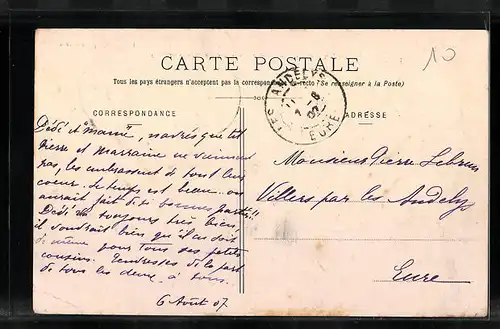 CARTE POSTALE
Tous les pays étrangers n'acceptent pas la correspondance au recto (Se renseigner à la Poste)
10
CORRESPONDANCE
ADRESSE
LES ANDELYS
EURE
Dédé et que tit
Pierre et Marraine ne viennent
pas, les embrassent de tout leur
coeur. Le temps est beau on
aurait fait de si bonnes parties!!
Dédé va toujours très bien,
il voudrait bien qu'il en soit
de même pour tous ses petits
cousins. Tendresses de la part
de tous les deux à tous.
6 Août 07
Monsieur Pierre Lebrun
Villers par les Andelys
Eure